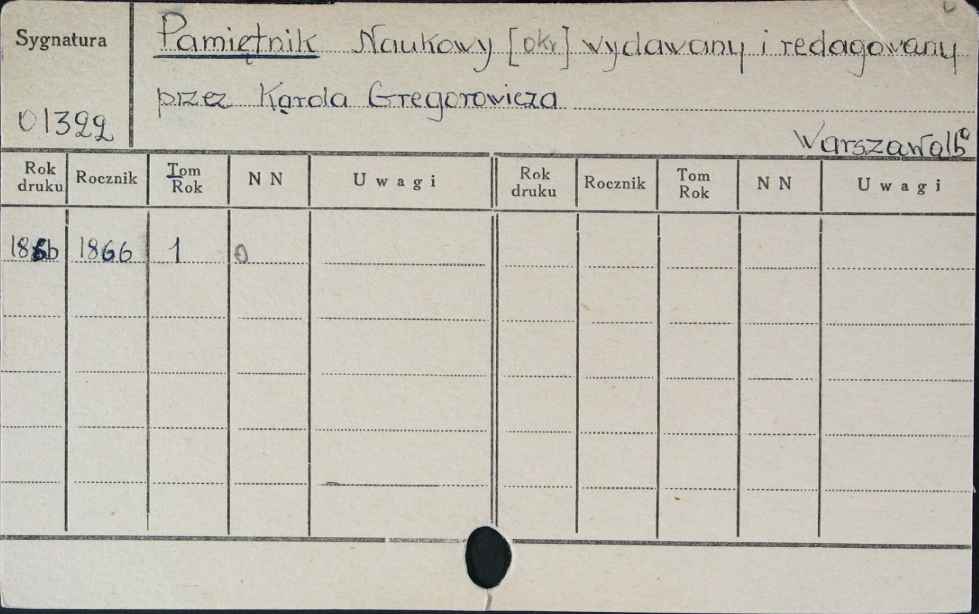 Sygnatura
Pamiętnik Naukowy [okr] wydawany i redagowany
przez Karola Gregorowicza
01322
Rok druku Rocznik Tom Rok N N Uwagi Rok druku Rocznik Tom Rok N N Uwagi
1866 1866 1 0